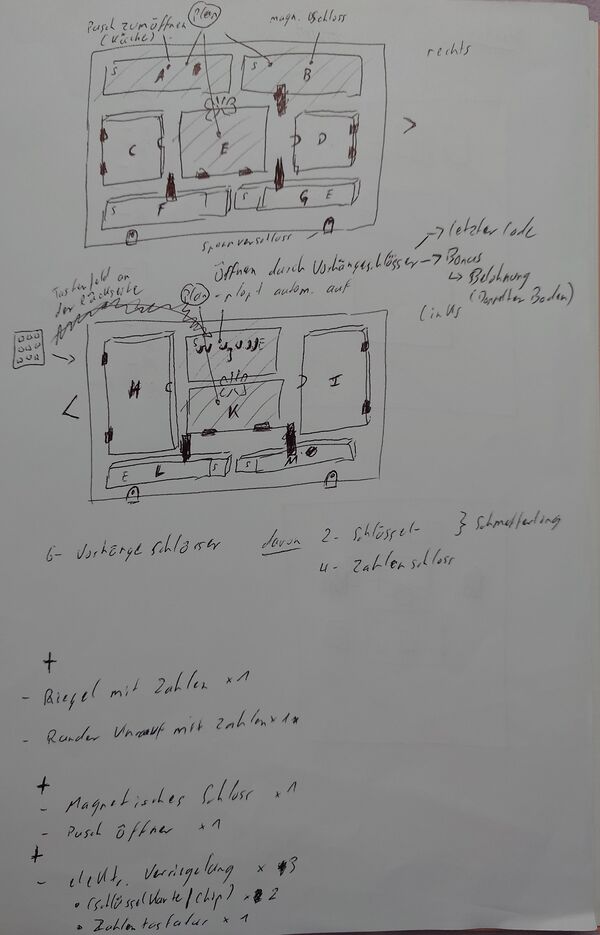 Pusch zum öffnen
(Küche)
Plan
magn. Schloss
rechts
S A B
S B
C
E
D
>
S F
S G E
Spannverschloss
Öffnen durch Vorhängeschlösser → letzter Code
→ Bonus
↳ Belohnung
(Doppelter Boden)
Tastenfeld an
der Rückseite
Plan
- plopt autom. auf
links
S J E
H
I
K
<
E L S
S M
6- Vorhänge schlösser davon 2- Schlüssel- } Schmetterling
4- Zahlenschloss
+
- Riegel mit Zahlen x 1
- Runder mit Zahlen x 1
+
- Magnetisches Schloss x 1
- Pusch Öffner x 1
+
- elektr. Verriegelung x 3
• (Schlüsselkarte/chip) x 2
• Zahlentastatur x 1